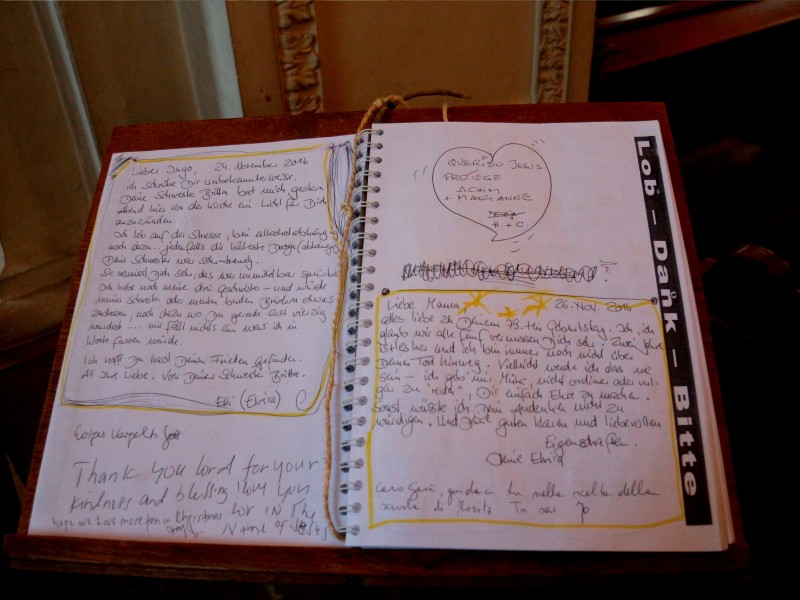 Lieber Ingo, 24. November 2016
ich schreibe Dir unbekannterweise.
Deine Schwester Britta bat mich gestern
Abend hier vor der Kirche ein Licht für Dich
anzuzünden
Ich leb auf der Strasse, bin alkoholabhängig
noch dazu... jedenfalls die härteste Droge
Deine Schwester war sehr traurig.
Sie vermisst Dich sehr, das war unmittelbar spürbar
Ich habe noch meine drei Geschwister - und würde
meiner Schwester oder meinen beiden Brüdern etwas
zustossen, noch dazu wo Du gerade erst vierzig
wurdest.... mir fällt nichts ein was ich in
Worte fassen würde.
Ich hoffe Du hast Deinen Frieden gefunden.
All Ihre Liebe. Von Deiner Schwester Britta.
(Elvira)
Ewiges Vergelts Gott
Thank you Lord for your
kindness and blessing! love you
hope we have more fun in Christmas
Name of Jesus
QUERIDO JESUS
PROTEGE
ACHIM
+ MARIANNE
H + C.
?
Liebe Mama, 26. Nov. 2016
alles liebe zu Deinem 73.ten Geburtstag. Ich, ich
glaub wir alle fünf vermissen Dich sehr. Zwei Jahre
ist es her und ich bin immer noch nicht über
Deinen Tod hinweg. Vielleicht werde ich das nie
sein - ich geb' mir Mühe, nicht ordinär oder vul-
gär zu "reden", Dir einfach Ehre zu machen.
Sonst wüsste ich Dein Andenken nicht zu
würdigen. Und Deine guten klaren und liebevollen
Eigenschaften.
Deine Elvira
Caro Gesù, guidaci tu nella scelta della
scuola di Moritz Tu sai
Lob - Dank - Bitte